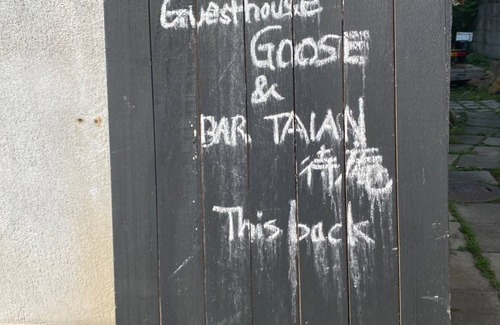 Guesthouse
GOOSE
&
BAR TAIAN
待庵
This back